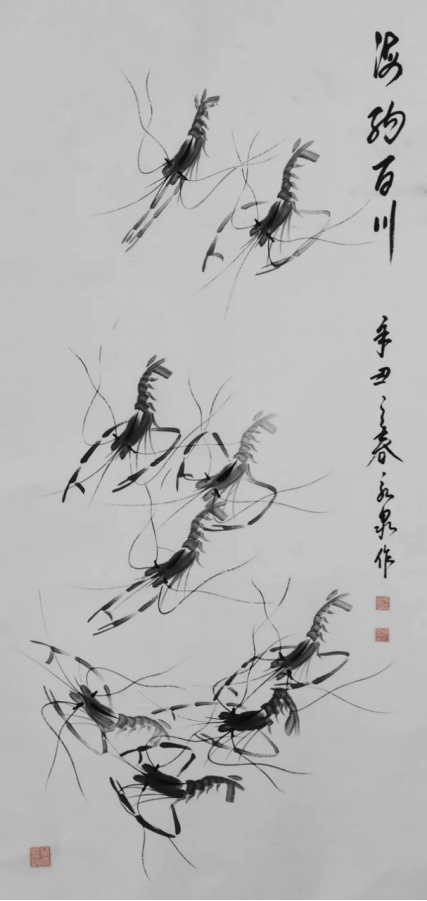 海纳百川
辛丑之春永泉作